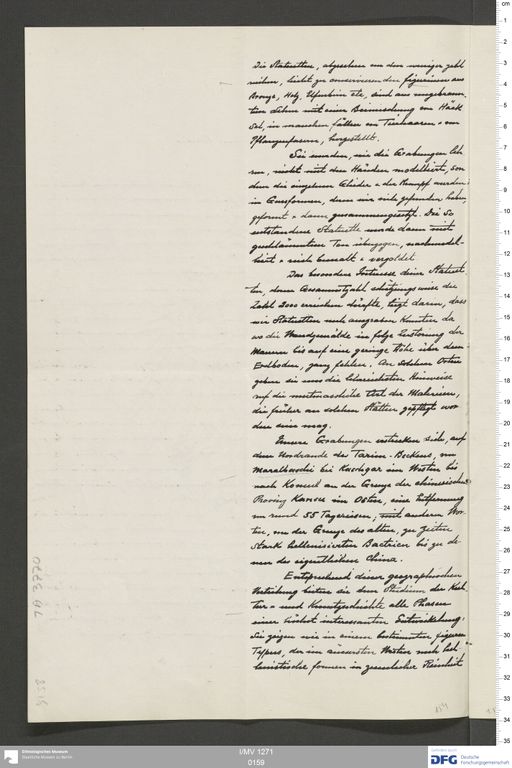 Die Statuetten, abgesehen von den weniger zahl
reichen, leicht zu conservierenden figurinen aus
Bronze, Holz, Elfenbein etc, sind aus ungebrann
tem Lehm mit einer Beimischung von Häck
sel, in manchen fällen von Tierhaaren & von
Pflanzenfasern, hergestellt.
Sie wurden, wie die Grabungen leh
ren, nicht mit den Händen modelliert, son
dern die einzelnen Glieder & der Rumpf wurden
in Gussformen, deren wir viele gefunden haben,
geformt & dann zusammengesetzt. Die so
entstandene Statuette wurde dann mit
geschlämmtem Ton überzogen, nachmodel-
liert & reich bemalt & vergoldet.
Das besondere Interesse dieser Statuet
ten, deren Gesammtzahl schätzungsweise die
Zahl 2000 erreichen dürfte, liegt darin, dass
wir Statuetten noch ausgraben konnten da
wo die Wandgemälde in folge Zerstörung der
Mauern bis auf eine geringe Höhe über dem
Erdboden, ganz fehlen. An solchen Orten
geben sie uns die Hinweise
auf die Art der Malereien,
die früher an solchen Stätten gepflegt wor
den sein mag.
Unsere Grabungen erstrecken sich, auf
dem Nordrande des Tarim-Beckens, von
Maralbaschi bei Kaschgar im Westen bis
nach Komul an der Grenze der chinesischen
Provinz Kansu im Osten, eine Entfernung
von rund 55 Tagereisen, mit anderen Wor-
ten, von der Grenze des alten, zu Zeiten
stark hellenisierten Bactrien bis zu de
nen des eigentlichen China.
Entsprechend dieser geographischen
Verteilung bieten sie dem Studium der Kul
tur & und Kunstgeschichte alle Phasen
einer höchst interessanten Entwickelung.
Sie zeigen wie in einem bestimmten figuren
Typus, der im äussersten Westen noch hel
lenistische formen in ziemlicher Reinheit
TA 3770
154
Ethnologisches Museum
Staatliche Museen zu Berlin
I/MV 1271
0159
DFG
Deutsche
Forschungsgemeinschaft